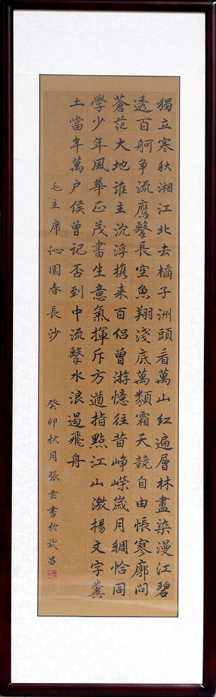 獨立寒秋湘江北去橘子洲頭看萬山紅遍層林盡染漫江碧
透百舸争流鷹擊長空魚翔淺底萬類霜天競自由悵寥廓問
蒼茫大地誰主沉浮携来百侣曾游憶往昔崢嶸歲月稠恰同
學少年風華正茂書生意氣揮斥方遒指點江山激揚文字糞
土當年萬户侯曾記否到中流擊水浪遏飛舟
毛主席沁園春長沙
癸卯秋月張雲書於武昌